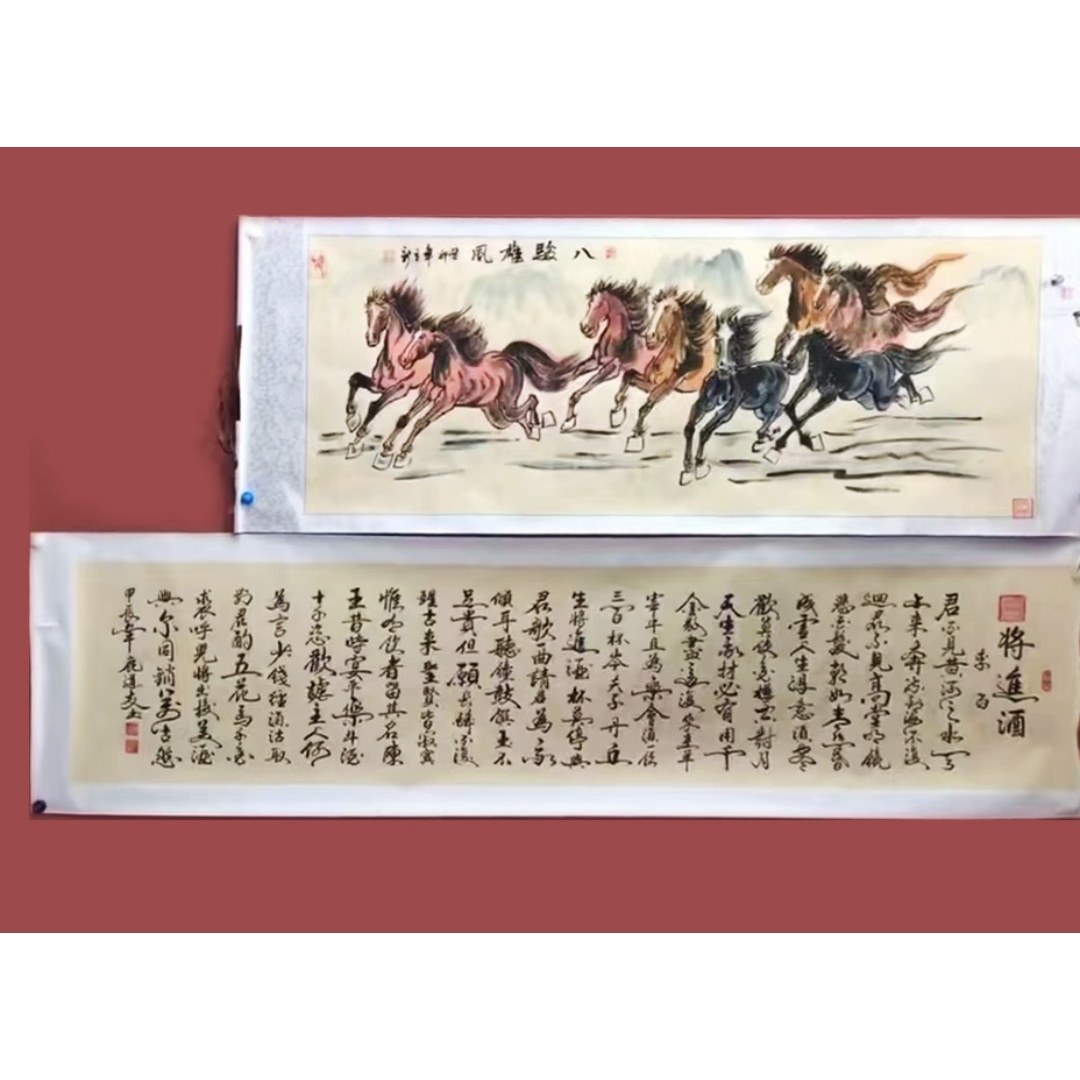 八駿雄風
癸卯年
將進酒
李白
君不見黃河之水天
上來奔流到海不復
迴君不見高堂明鏡
悲白髮朝如青絲暮
成雪人生得意須盡
歡莫使金樽空對月
天生我材必有用千
金散盡還復來烹羊
宰牛且為樂會須一飲
三百杯岑夫子丹丘
生將進酒杯莫停與
君歌一曲請君為我
傾耳聽鐘鼓饌玉不
足貴但願長醉不復
醒古來聖賢皆寂寞
惟有飲者留其名陳
王昔時宴平樂斗酒
十千恣歡謔主人何
為言少錢徑須沽取
對君酌五花馬千金
裘呼兒將出換美酒
與爾同銷萬古愁
甲辰年